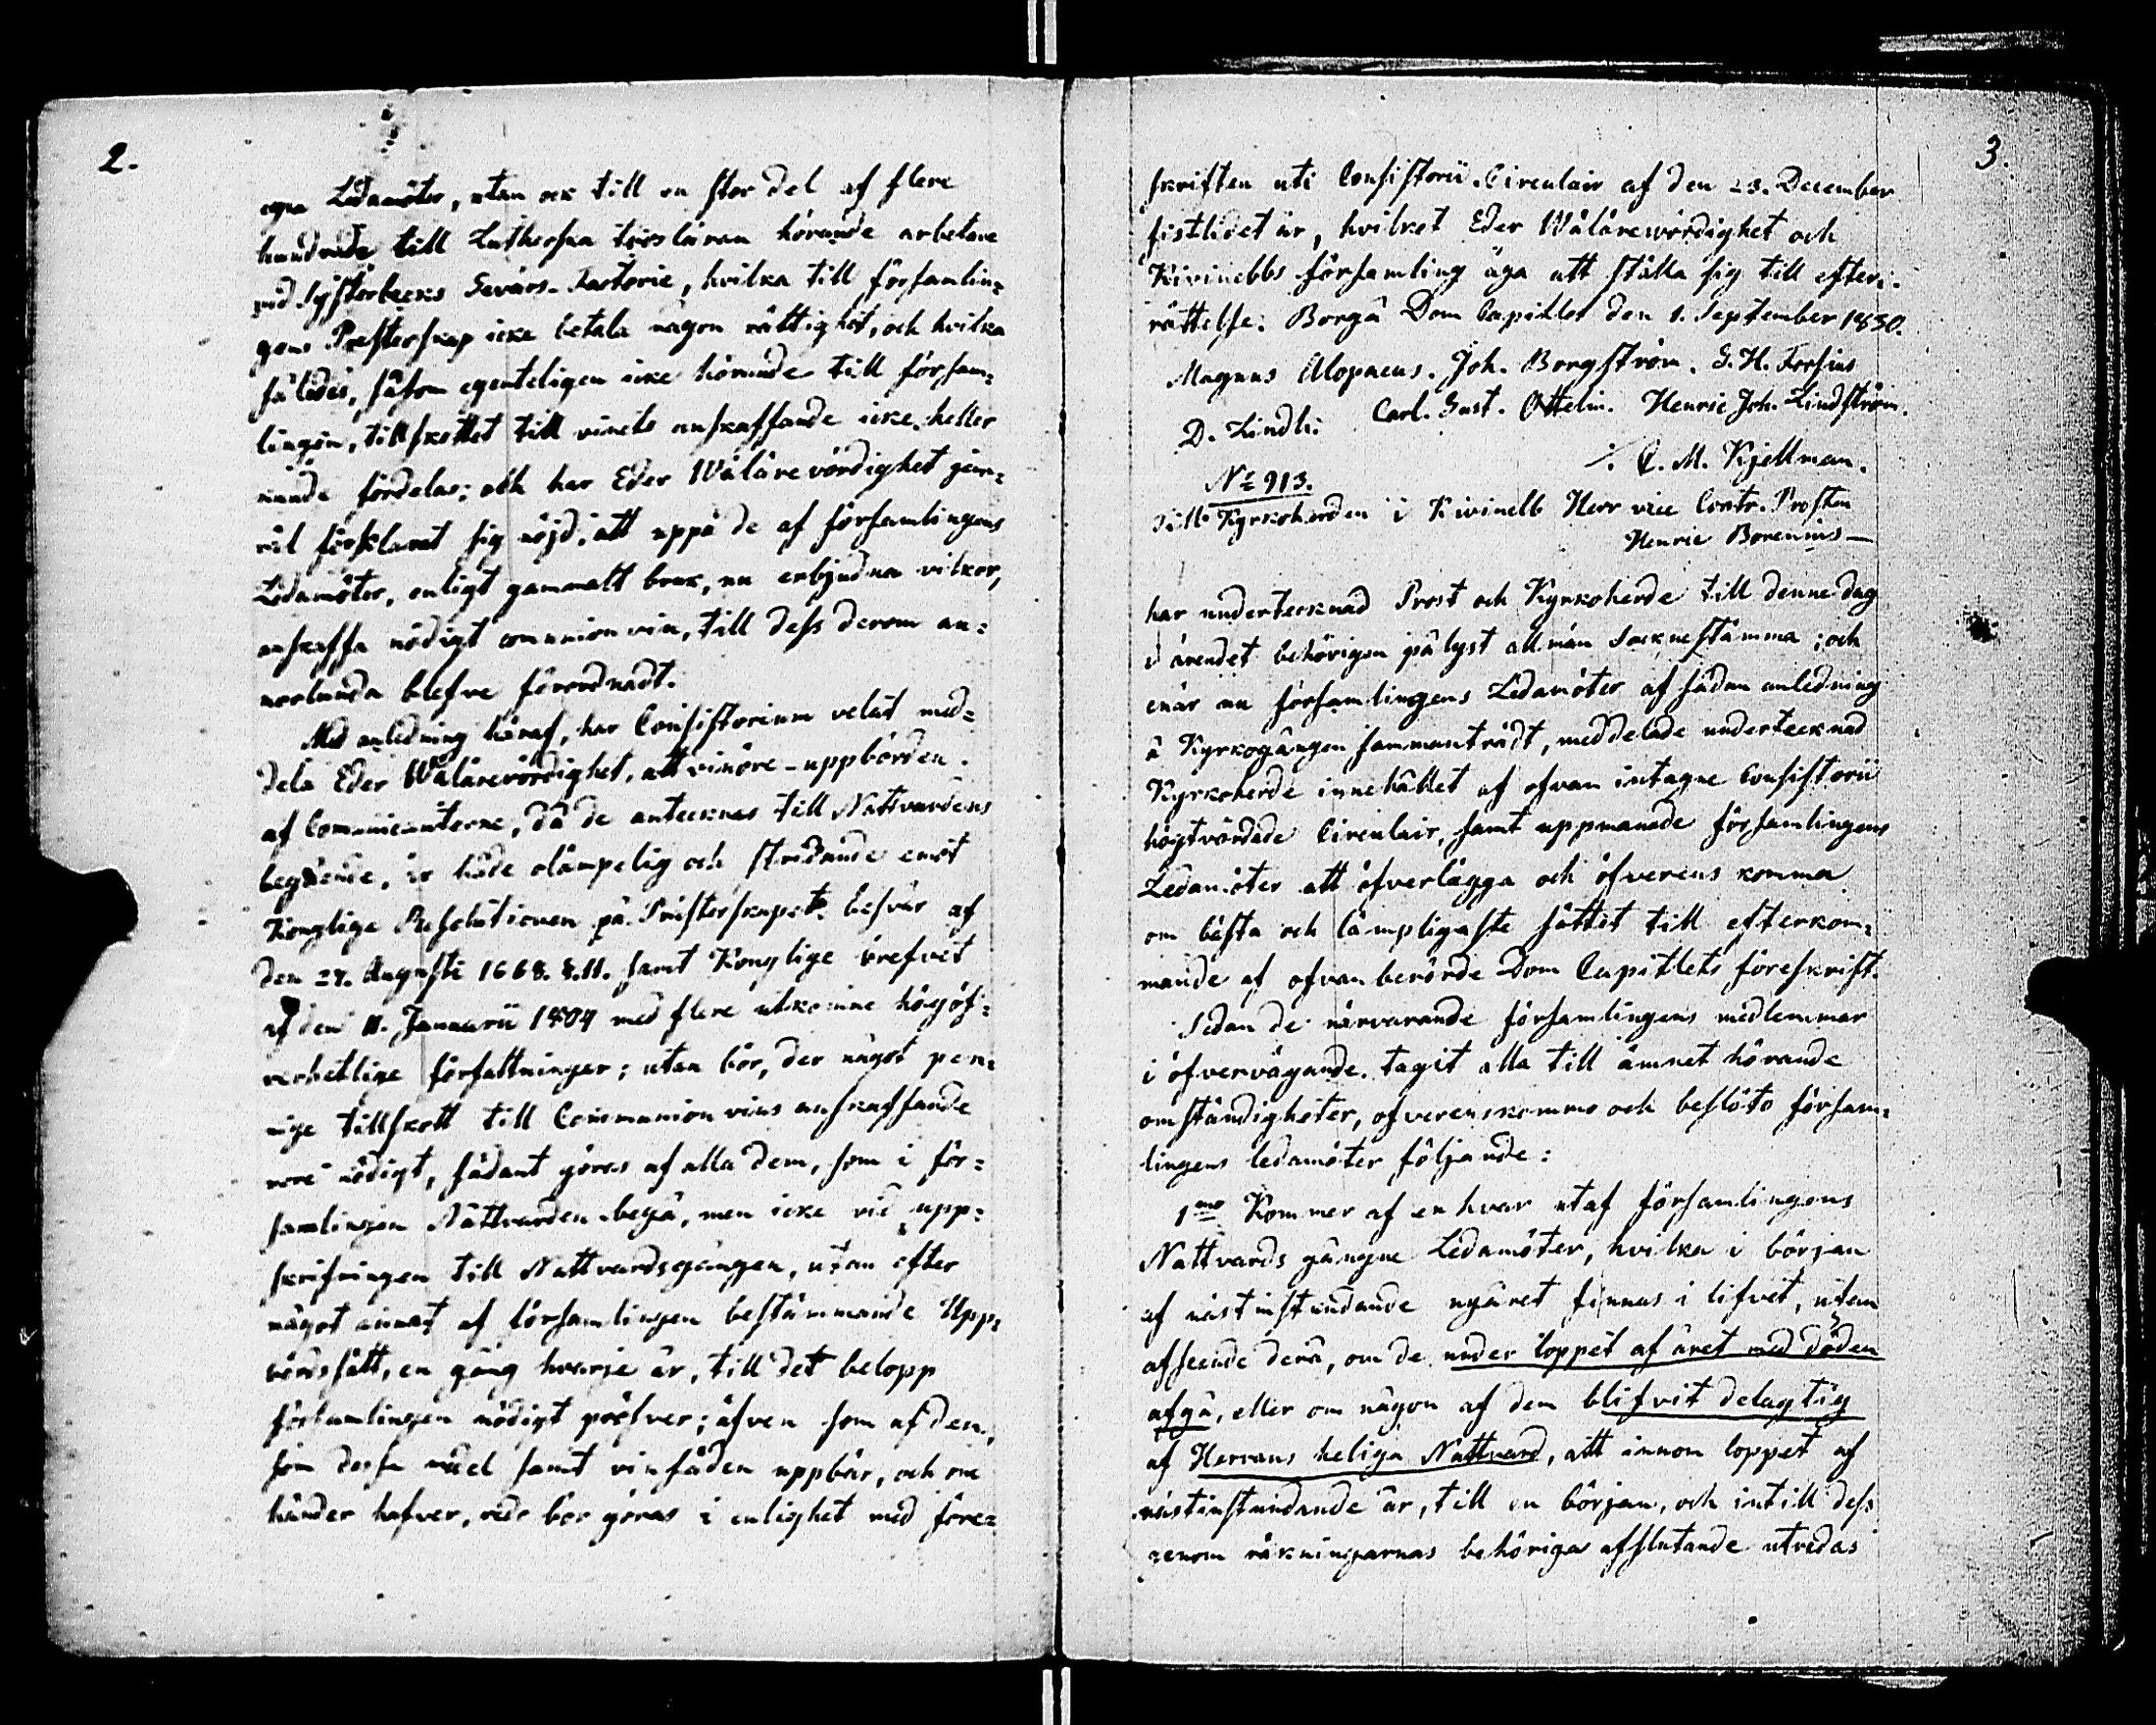 2.
egna Ledamöter, utan ock till en stor del af flere
hundrade till Lutherska trosläran hörande arbetare
vid Systerbecks Gevärs-Factorie, hvilka till församlin=
gens Presterskap icke betala någon rättighet, och hvilka
således, såsom egenteligen icke hörande till försam=
lingen, tillskottet till vinets anskaffande icke heller
kunde fördelas; och har Eder Wälärevördighet jem=
väl förklarat sig nöjd, att uppå de af församlingens
Ledamöter, enligt gammalt bruk, nu erbjudna vilkor,
anskaffa nödigt communion vin, till dess derom an=
norlunda blefve förordnadt.
Med anledning häraf, har Consistorium velat med=
dela Eder Wälärevördighet, att vinöre-uppbörden
af Communicanterne, då de antecknas till Nattvardens
begående, är både olämpelig och stridande emot
Konglige Resolutionen på Presterskapets besvär af
den 27. Augusti 1668. §.11. samt Konglige brefvet
af den 11. Januarii 1704 med flere utkomne högöf=
verhetlige författningar; utan bör, der något pen=
nige tillskott till Communion vins anskaffande
vore nödigt, sådant göras af alla dem, som i för=
samlingen Nattvarden begå, men icke vid upp=
skrifningen till Nattvardsgången, utan efter
något annat af församlingen bestämmande Upp=
bördssätt, en gång hvarje år, till det belopp
församlingen nödigt pröfver; äfven som af den,
som dessa medel samt vinsäden uppbär, och om
händer hafver, redo bör göras i enlighet med före=
3.
skriften uti Consistorii Circulair af den 23. December
sistlidet år, hvilket Eder Wälärevördighet och
Kivinebbs församling äga att ställa sig till efter=
rättelse. Borgå Dom Capitlet den 1. September 1830.
Magnus Alopaeus. Joh. Borgström. G. H. Forsius
D. Lindh. Carl. Gust. Ottelin. Henric Joh. Lindström.
/. C. M. Kjellman.
No 913.
Till Kyrkoherden i Kivinebb Herr vice Contr. Prosten
Henric Borenius—
har undertecknad Prost och Kyrkoherde till denne dag
i ärendet behörigen pålyst allmän Sockenstämma; och
enär nu församlingens Ledamöter af sådan anledning
å Kyrkogången sammanträdt, meddelade undertecknad
Kyrkoherde innehållet af ofvan intagne Consistorii
högtvördade Circulair, samt uppmanade församlingens
Ledamöter att öfverlägga och öfverens komma
om bästa och lämpligaste sättet till efterkom=
mande af ofvanberörde Dom Capitlets föreskrift.
Sedan de närvarande församlingens medlemmar
i öfvervägande tagit alla till ämnet hörande
omständigheter, öfverenskommo och beslöto försam=
lingens ledamöter följande:
1mo Kommer af en hvar utaf församlingens
Nattvards gångne Ledamöter, hvilka i början
af nästinstundande nyåret finnas i lifvet, utan
afseende derå, om de under loppet af året med döden
afgå, eller om någon af dem blifvit delagtig
af Herrans heliga Nattvard, att innom loppet af
nästinstundande år, till en början, och intill dess
genom räkningarnas behöriga afslutande utredas